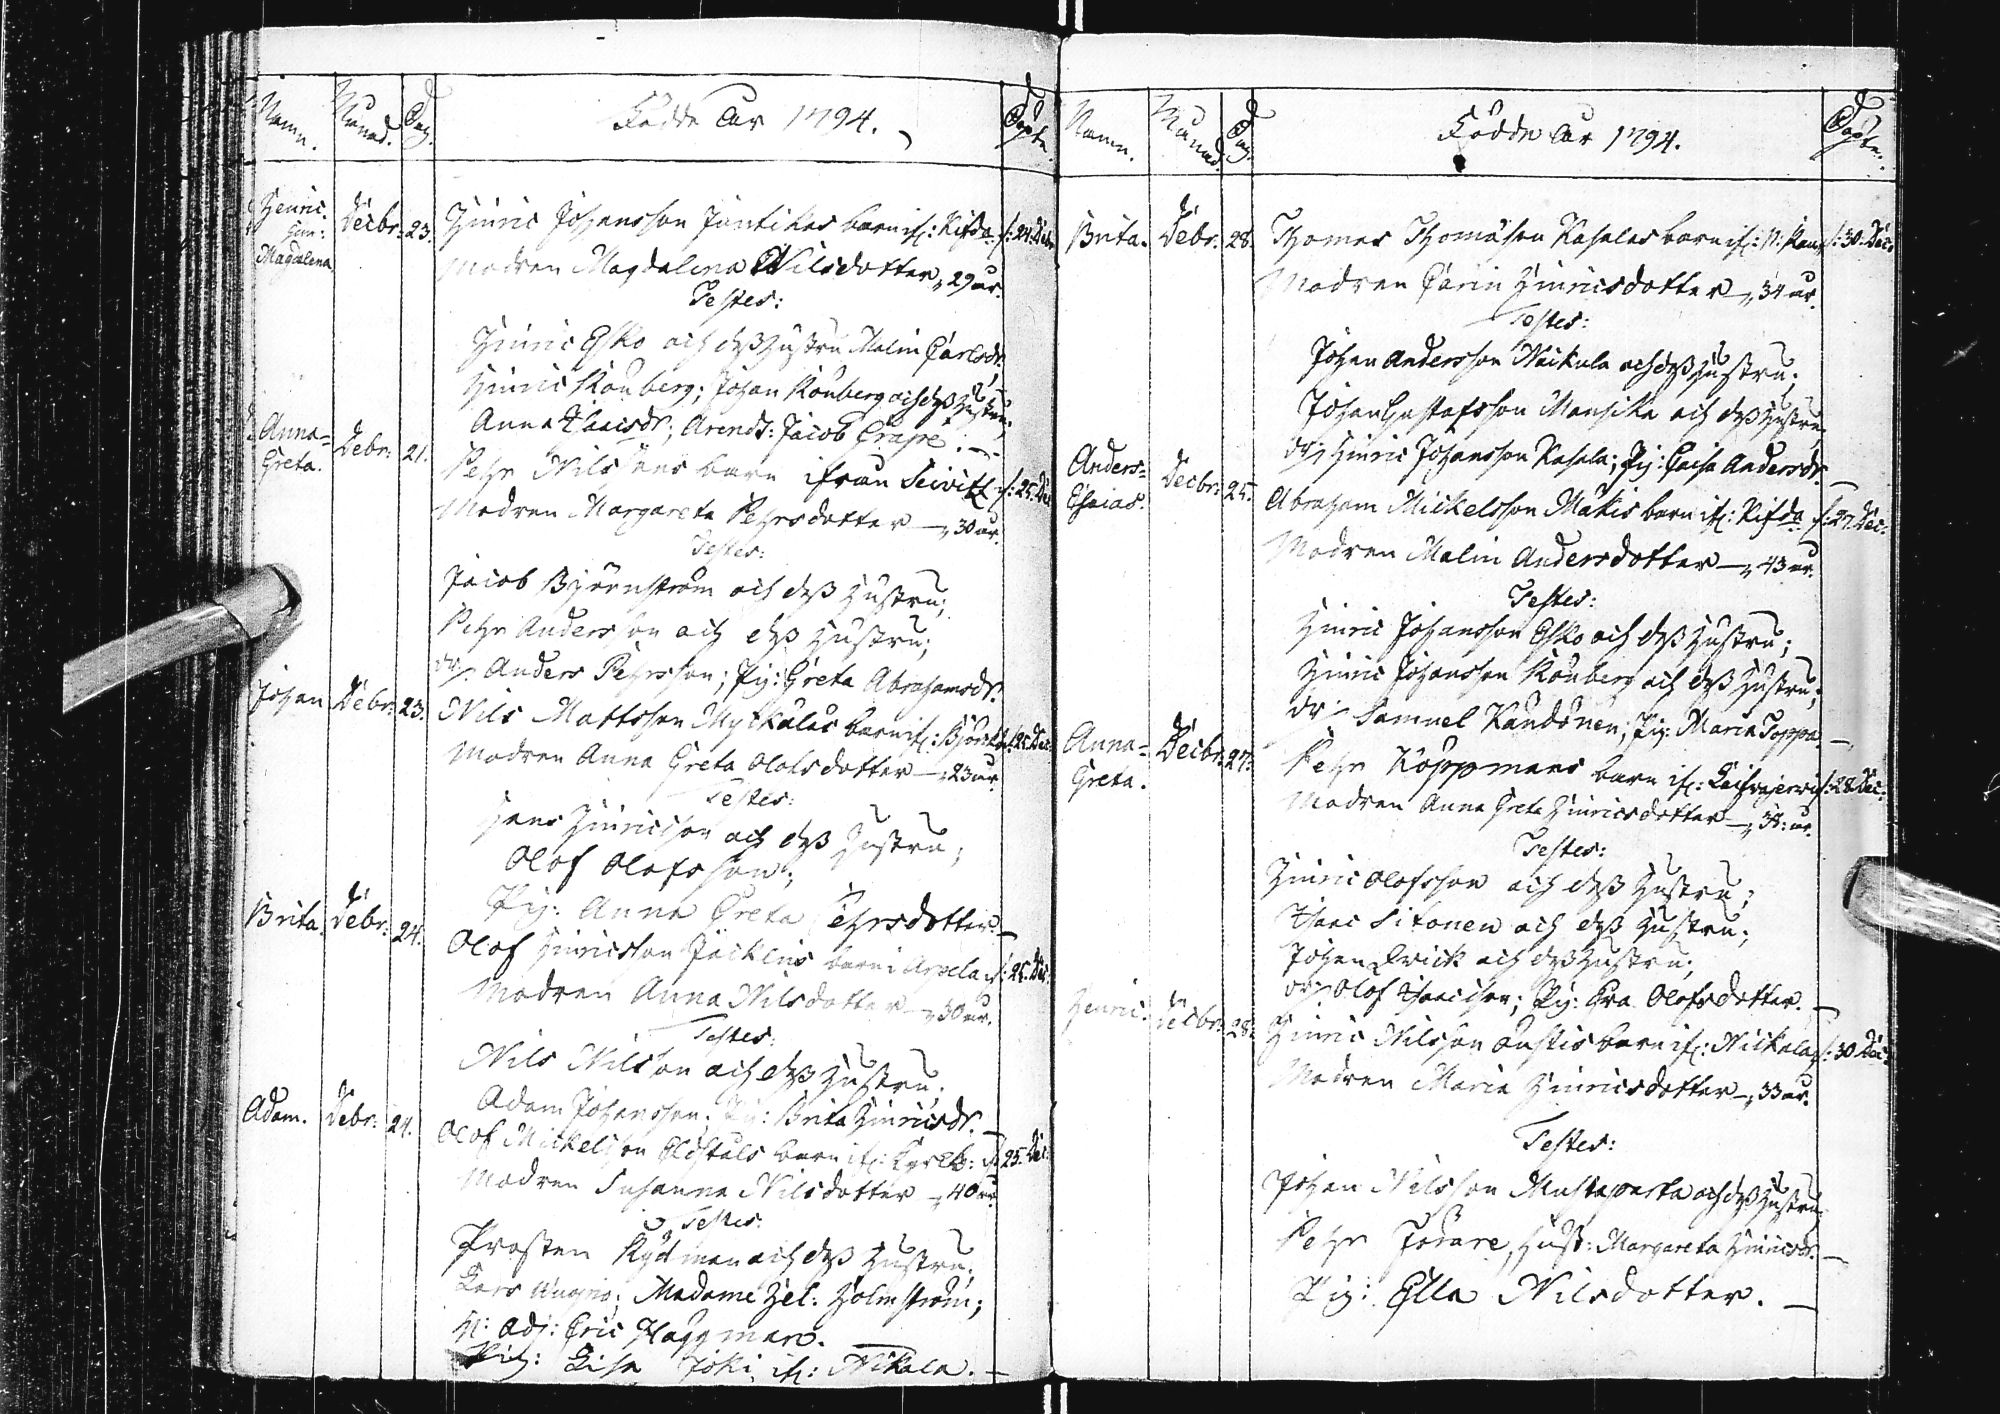 Namn. Månad. Dag. Födde År 1794. Döpte.
Henric. Decbr: 23. Hinric Johansson Jantikas barn if: d: 24. Dec:
Magdalena
Modren Magdalena Nilsdotter, 29 år.
Testes:
Hinric Esko och dess Hustru Malin Carlsdr.
Hinric Kouberg; Johan Kouberg och dess Hustru;
Anna Isacsdr; Arend: Jacob Grape.
Anna= Debr: 21. Pehr Nilssons barn ifrån d: 25. Dec
Greta. Modren Margareta Pehrsdotter 30 år.
Testes:
Jacob Björnström och dess Hustru;
Pehr Andersson och dess Hustru;
dr: Anders Pehrsson; Pig: Greta Abrahamsdr.
Johan Debr: 23. Nils Mattsson barn if: d: 25. Dec:
Modren Anna Greta Olofsdotter 23 år
Testes:
Hans Hinricsson och dess Hustru;
Olof Olofsson;
Pig: Anna Greta Pehrsdotter.
Brita. Debr: 24. Olof Hinricsson barn i d: 25. Dec:
Modren Anna Nilsdotter 30 år.
Testes:
Nils Nilsson och dess Hustru;
Adam Johansson; Pig: Brita Hinricsdr.
Adam. Debr: 24. Olof Mickelsson barn if: d: 25. Dec:
Modren Susanna Nilsdotter 40 år
Testes:
Prosten och dess Hustru;
Lars Madame Hel: Holmström;
H: Adj: Eric Häggman.
Pig: Lisa Joki, if: Nikala.
Namn. Månad. Dag. Födde År 1794. Döpte.
Brita. Debr: 28. Thomas Thomasson Kasalas barn if: d: 30. Dec:
Modren Carin Hinricsdotter 34 år.
Testes:
Johan Andersson Naikula och dess Hustru;
Johan Gustafsson Mansika och dess Hustru
dr: Hinric Johansson Kasala; Pig: Caisa Andersdr.
Anders= Decbr: 25. Abraham Mickelsson Mäkis barn if: d: 27. Dec:
Esaias. Modren Malin Andersdotter 43 år.
Testes:
Hinric Johansson Esko och dess Hustru;
Hinric Johansson Kouberg och dess Hustru;
dr: Samuel Kandonen; Pig: Maria Toppa
Anna= Decbr: 27. Pehr Koppmans barn if: d: 28 Dec:
Greta. Modren Anna Greta Hinricsdotter år.
Testes:
Hinric Olofsson och dess Hustru;
Isaac Sitonen och dess Hustru;
Johan Qvick och dess Hustru;
dr: Olof Isacsson; Pig: Eva Olofsdotter.
Henric. Decbr: 28. Hinric Nilsson barn if: Nikala d: 30 Dec
Modren Maria Hinricsdotter 33 år.
Testes:
Johan Nilsson Mustaparta och dess Hustru
Pehr Hust: Margareta Hinricsdr.
Pig: Ella Nilsdotter.